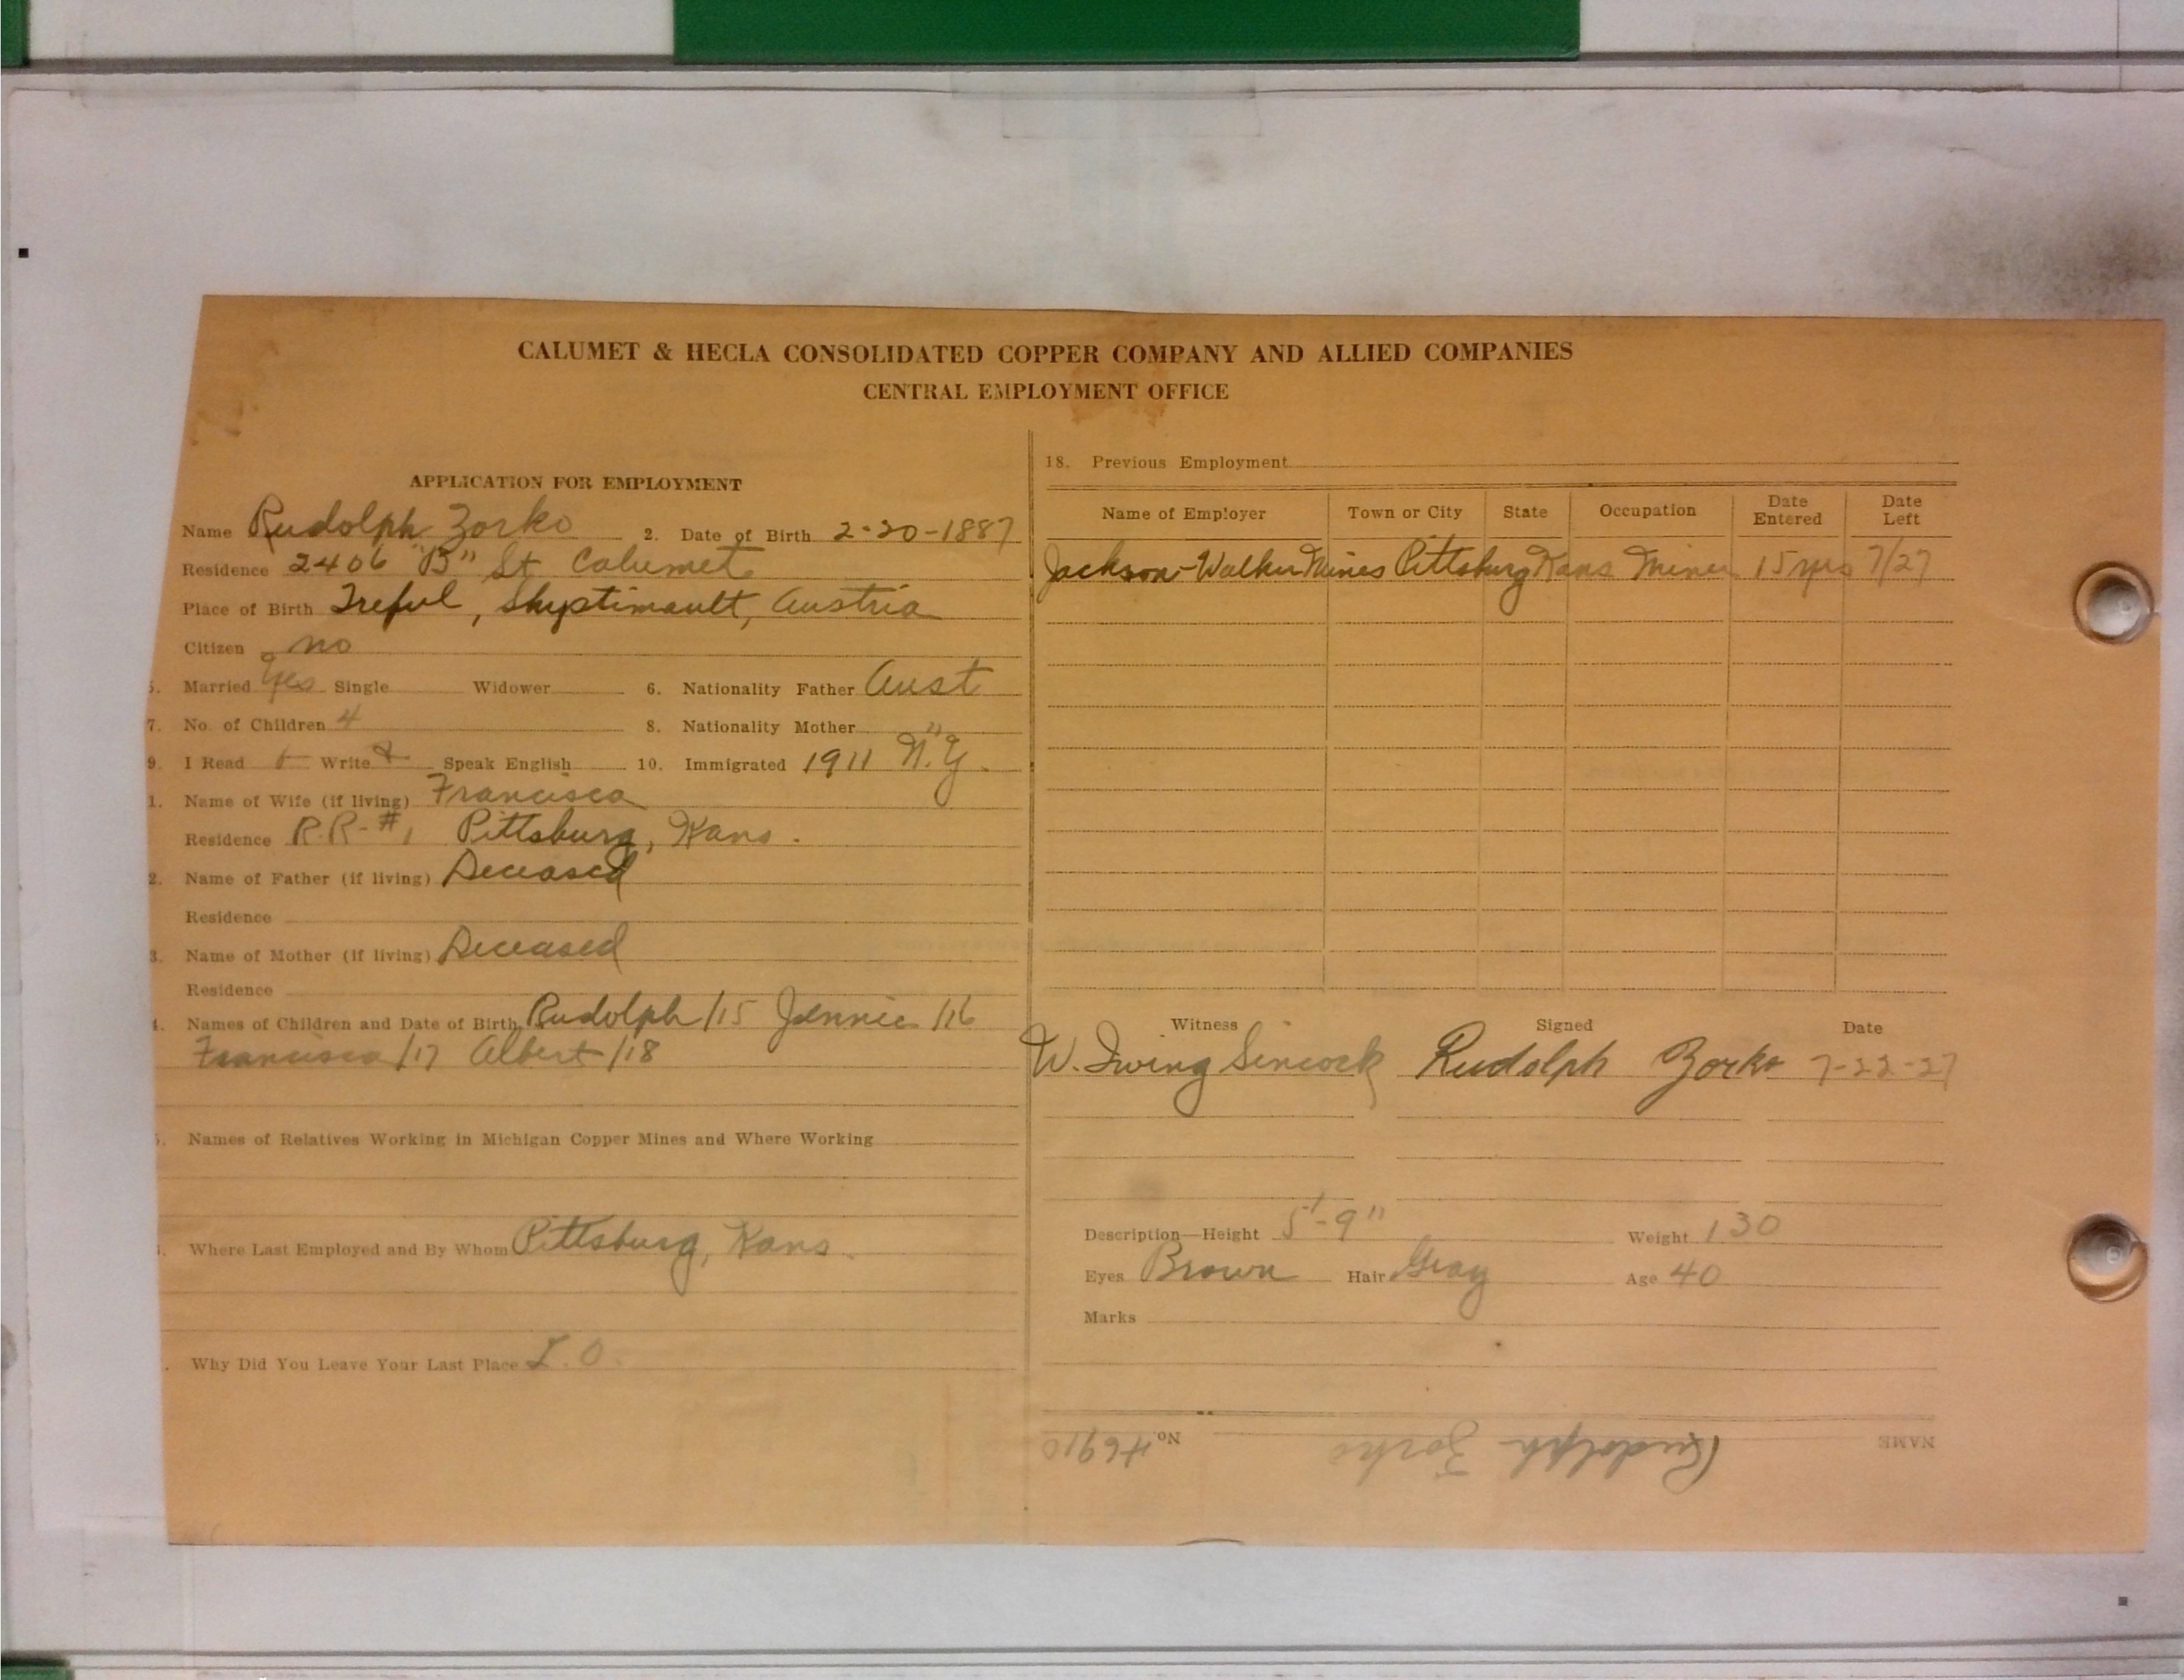 CALUMET & HECLA CONSOLIDATED COPPER COMPANY AND ALLIED COMPANIES
CENTRAL EMPLOYMENT OFFICE
APPLICATION FOR EMPLOYMENT
Name Rudolph Zorko 2. Date of Birth 2-20-1887
Residence 2406 "B" St Calumet
Place of Birth Treful, Shystimault, Austria
Citizen no
5. Married Yes Single Widower 6. Nationality Father Aust
7. No. of Children 4 8. Nationality Mother "
9. I Read Write Speak English 10. Immigrated 1911 N.Y.
1. Name of Wife (if living) Francisca
Residence R.R-#1 Pittsburg, Kans.
2. Name of Father (if living) Deceased
Residence
3. Name of Mother (if living) Deceased
Residence
4. Names of Children and Date of Birth Rudolph /15 Jennie /16
Francisca /17 Albert /18
5. Names of Relatives Working in Michigan Copper Mines and Where Working
Where Last Employed and By Whom Pittsburg, Kans.
Why Did You Leave Your Last Place
18. Previous Employment
Name of Employer Town or City State Occupation Date Entered Date Left
Jackson-Walker Mines Pittsburg Kans Miner 15 yrs 7/27
Witness Signed Date
W. Irving Sincock Rudolph Zorko 7-22-27
Description—Height 5'-9" Weight 130
Eyes Brown Hair Gray Age 40
Marks
NAME Rudolph Zorko No. 46910